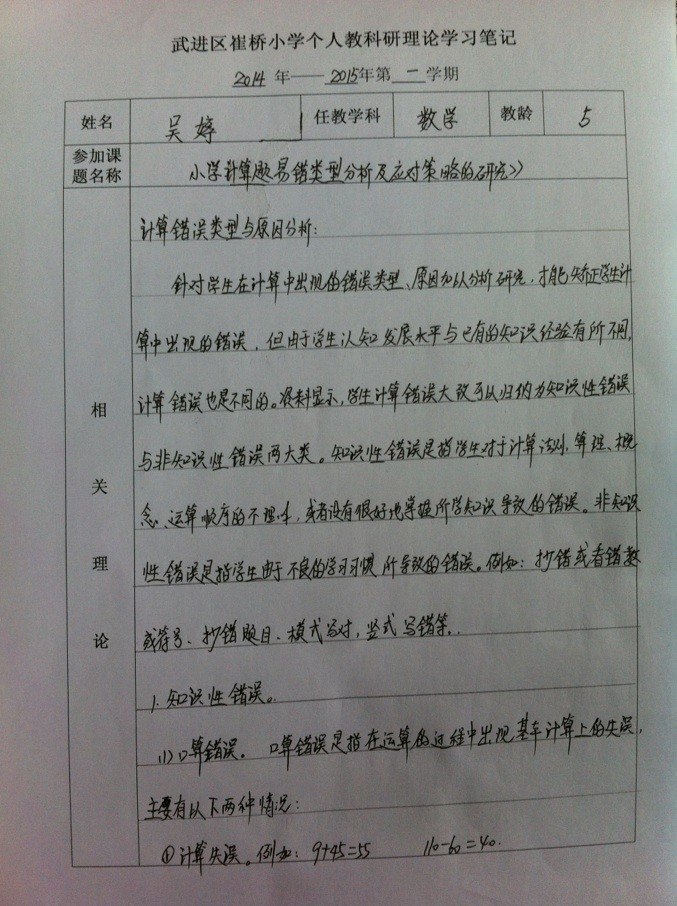 武进区崔桥小学个人教科研理论学习笔记
2014 年——2015年第 一 学期
姓名 吴婷 任教学科 数学 教龄 5
参加课题名称 小学计算题易错类型分析及应对策略的研究》
相关理论
计算错误类型与原因分析:
针对学生在计算中出现的错误类型、原因加以分析研究,才能矫正学生计
算中出现的错误,但由于学生认知发展水平与已有的知识经验有所不同,
计算错误也是不同的。资料显示,学生计算错误大致可以归纳为知识性错误
与非知识性错误两大类。知识性错误是指学生对于计算法则、算理、概
念、运算顺序的不理解,或者没有很好地掌握所学知识导致的错误。非知识
性错误是指学生由于不良的学习习惯所导致的错误。例如:抄错或看错数
或符号、抄错题目、横式写对,竖式写错等.
1. 知识性错误。
(1)口算错误。 口算错误是指在运算的过程中出现基本计算上的失误,
主要有以下两种情况:
①计算失误。例如:9+45=55 110-60=40.